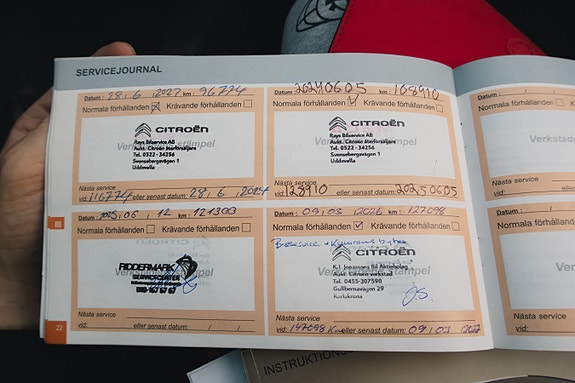 SERVICEJOURNAL
Datum: 28.6.2023 km: 96774
Normala förhållanden Krävande förhållanden
CITROËN
Rays Bilservice AB
Aukt. Citroën återförsäljare
Tel. 0522-34256
Svensebergsvägen 1
Uddevalla
Nästa service
vid: 116774 eller senast datum: 28.6.2024
Datum: 20240605 km: 108910
Normala förhållanden Krävande förhållanden
CITROËN
Rays Bilservice AB
Aukt. Citroën återförsäljare
Tel. 0522-34256
Svensebergsvägen 1
Uddevalla
Nästa service
vid: 128910 eller senast datum: 20250605
Datum: km: 121300
Normala förhållanden Krävande förhållanden
RIDDERMARK
Nästa service
vid: eller senast datum: / /
Datum: 09/03/2026 km: 127098
Normala förhållanden Krävande förhållanden
CITROËN
K.J. Jonassons Bil Aktiebolag
Aukt. Citroën verkstad
Tel. 0455-307590
Gullbernavägen 29
Karlskrona
Nästa service
vid: 147098 Km eller senast datum: 09/03/2027
22
III
Datum:
Normala
Nästa service
vid:
Datum:
Normala
Nästa service
vid:
INSTRUKTIONS